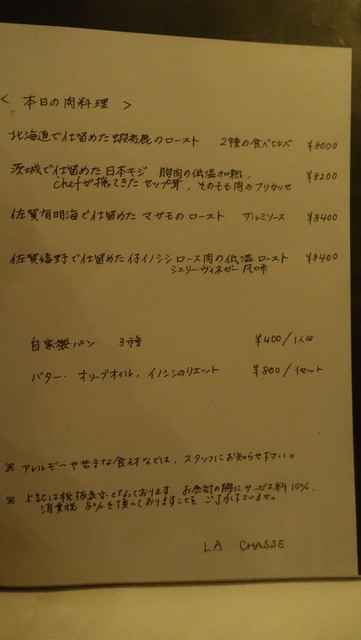 < 本日の肉料理 >
北海道で仕留めた蝦夷鹿のロースト 2種の食べ比べ ¥8000
茨城で仕留めた日本キジ 胸肉の低温加熱、 ¥8200
chefが採ってきたセップ茸、そのもも肉のフリカッセ
佐賀有明海で仕留めたマガモのロースト サルミソース ¥8400
佐賀嬉野で仕留めた仔イノシシロース肉の低温ロースト ¥8400
シェリーヴィネガー風味
自家製パン 3種 ¥400/1人分
バター・オリーブオイル、イノシシのリエット ¥800/1セット
※ アレルギーや苦手な食材などは、スタッフにお知らせ下さい。
※ 上記は税抜表示となっております。お会計の際にサービス料10%、
消費税 8%を頂いておりますことをご了承下さいませ。
LA CHASSE